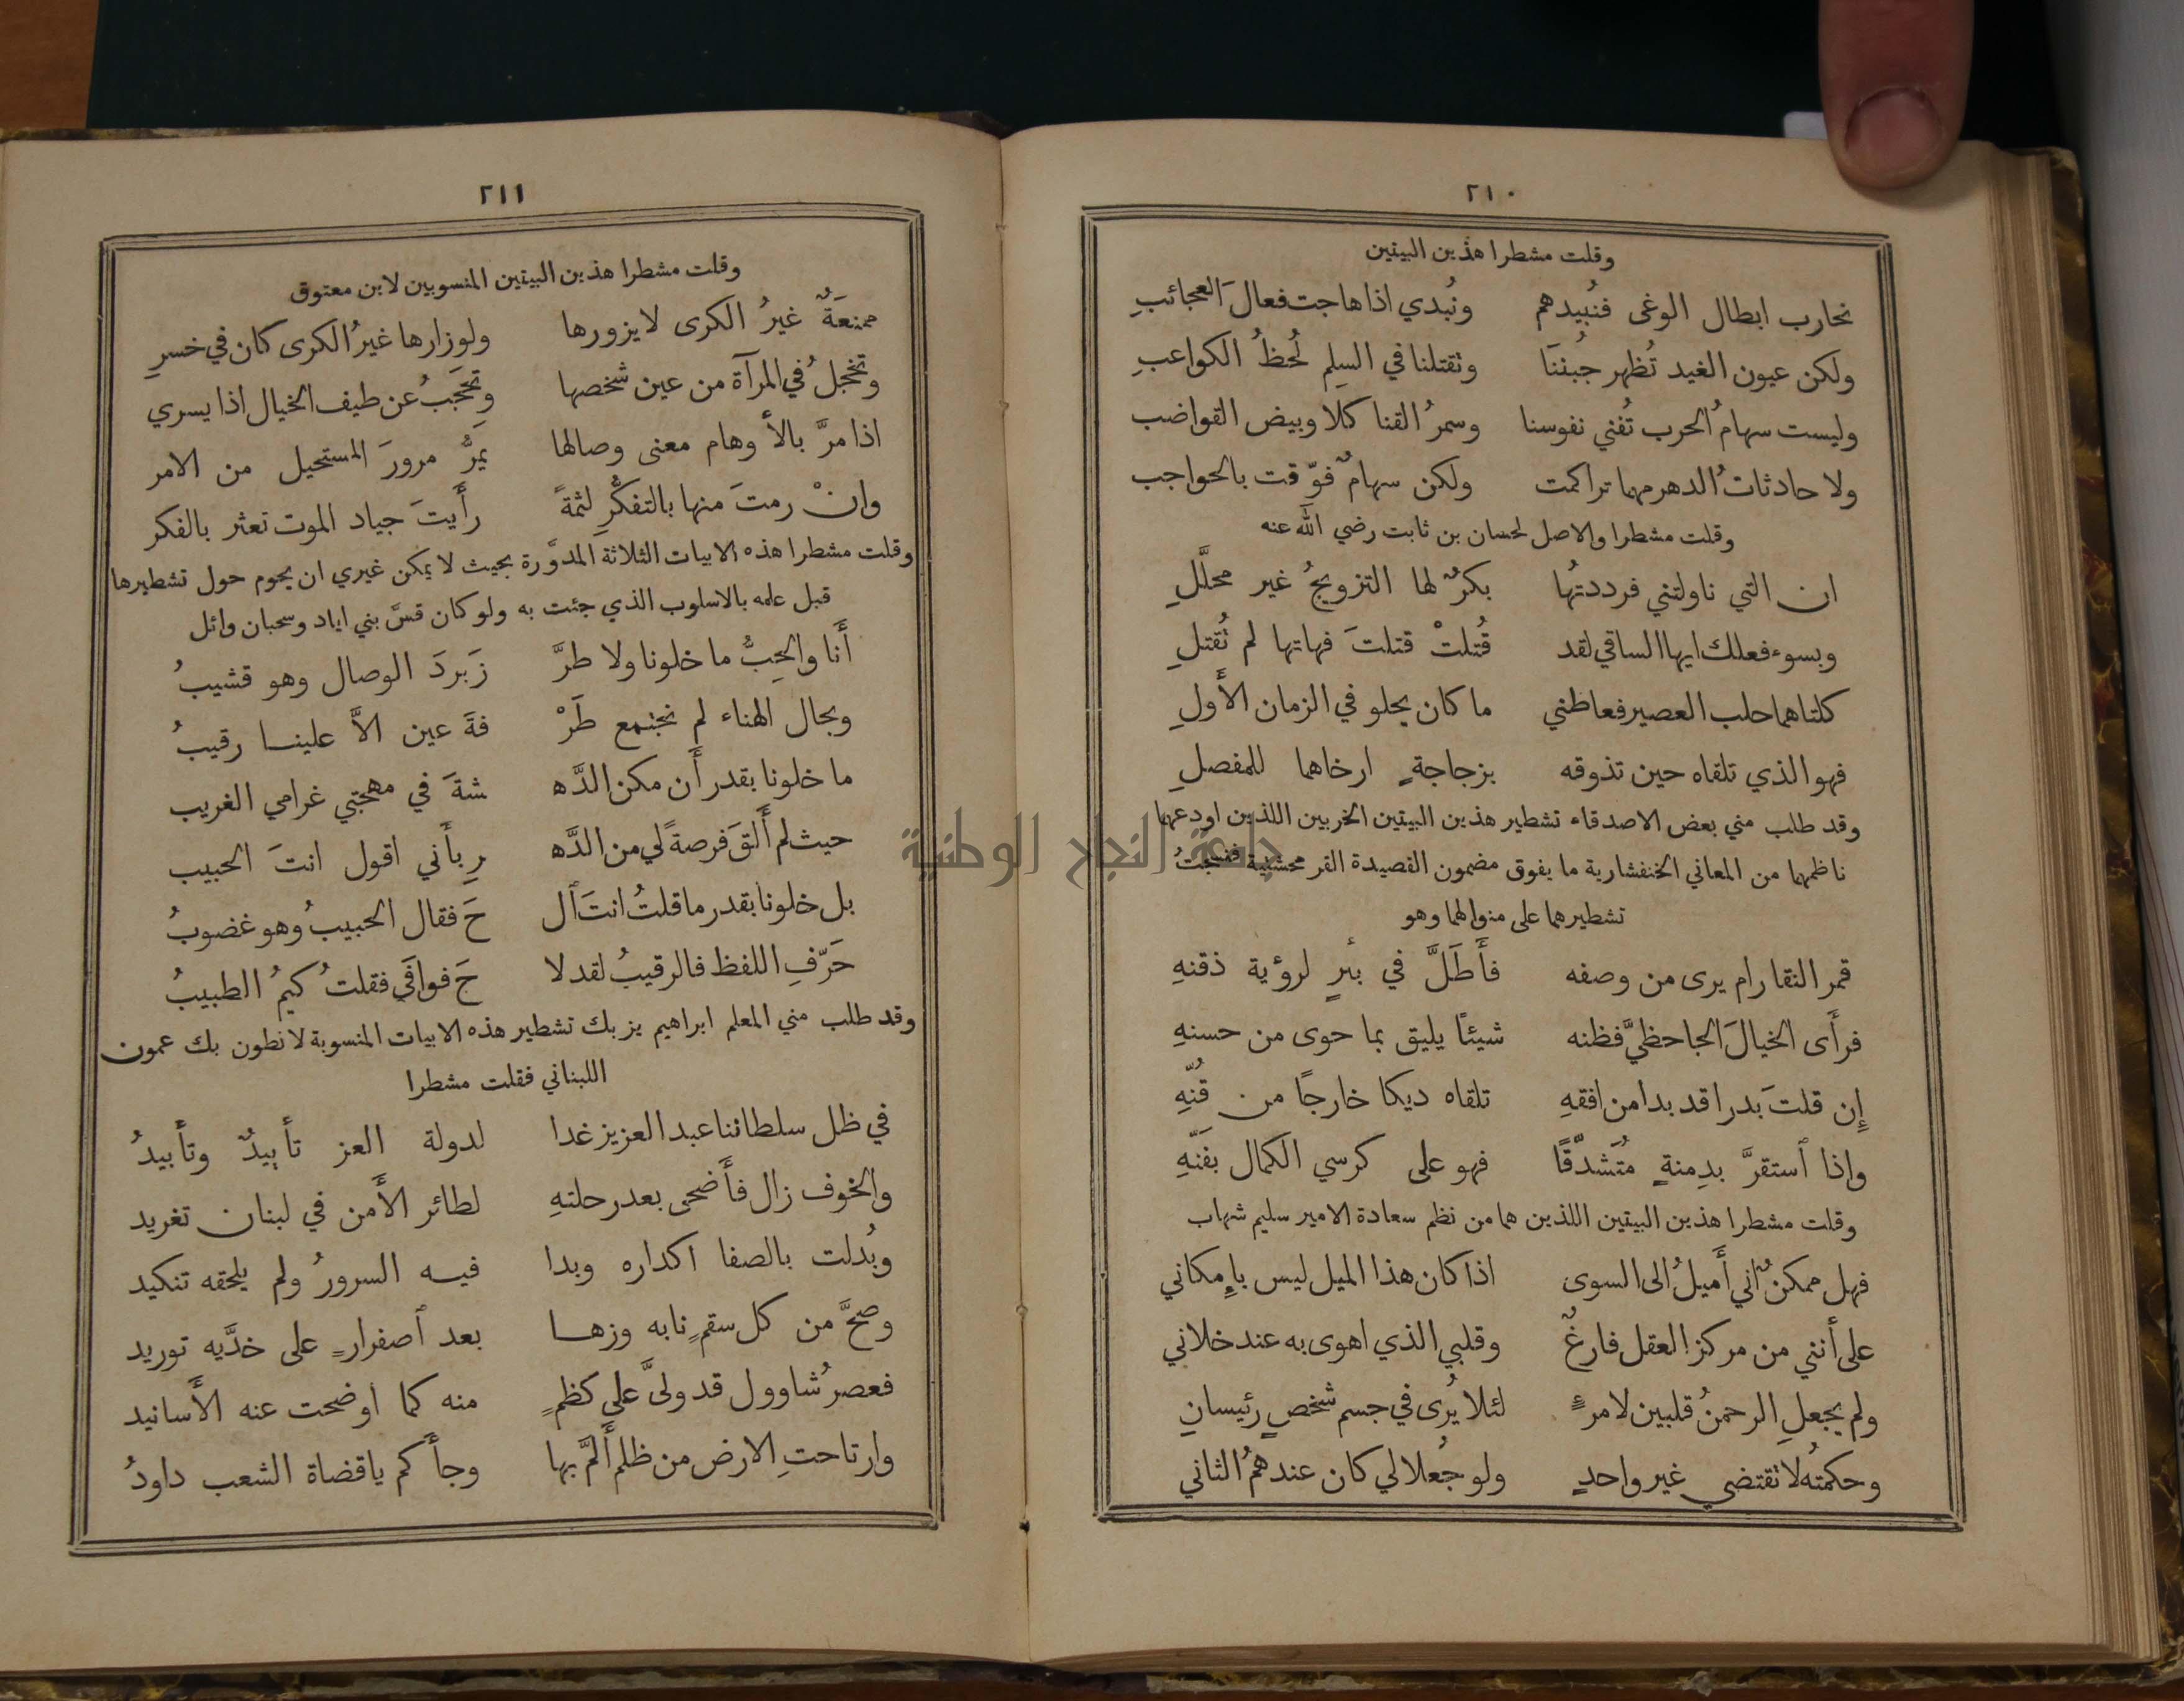 ٢١٠
وقلت مشطرا هذين البيتين
نحارب ابطال الوغى فنُبيدهم ونُبدي اذا هاجت فعالَ العجائبِ
ولكن عيون الغيد تُظهر جُبننَا وتقتلنا في السِلم لُحظُ الكواعبِ
وليست سهامُ الحرب تُفني نفوسنا وسمرُ القنا كلا وبيض القواضب
ولا حادثاتُ الدهر مهما تراكمت ولكن سهامٌ فوّقت بالحواجب
وقلت مشطرا والاصل لحسان بن ثابت رضي الله عنه
ان التي ناولتني فرددتُها بكرٌ لها التزويجُ غير محلَّلِ
وبسوء فعلك ايها الساقي لقد قُتلتْ قتلتَ فهاتها لم تُقتلِ
كلتاهما حلب العصير فعاظني ما كان يحلو في الزمان الأَولِ
فهو الذي تلقاه حين تذوقه بزجاجةٍ ارخاهما للمفصلِ
وقد طلب مني بعض الاصدقاء تشطير هذين البيتين الخربين اللذين اودعهما
ناظمهما من المعاني الخنفشارية ما يفوق مضمون القصيدة القر محشدية فنسجتُ
تشطيرهما على منوالهما وهو
قمر النقا رام يرى من وصفه فأَطَلَّ في بئرٍ لرؤية ذقنهِ
فرأَى الخيالَ الجاحظيَّ فظنه شيئًا يليق بما حوى من حسنهِ
إِن قلتَ بدرا قد بدا من افقهِ تلقاه ديكا خارجًا من قُنّهِ
واذا أستقرَّ بدِمنةٍ مُتَشدّقًا فهو على كرسي الكمال بفَنّهِ
وقلت مشطرا هذين البيتين اللذين هما من نظم سعادة الامير سليم شهاب
فهل ممكنٌ اني أَميلُ الى السوى اذا كان هذا الميل ليس بإِمكاني
على أنني من مركز العقل فارغٌ وقلبي الذي اهوى به عند خلاني
ولم يجعلِ الرحمنُ قلبين لامرءٍ لئلا يُرى في جسم شخصٍ رئيسانِ
وحكمتُه لا تقتضي غير واحدٍ ولو جُعلا لي كان عندهمُ الثاني
٢١١
وقلت مشطرا هذين البيتين المنسوبين لابن معتوق
ممنعَةٌ غيرُ الكرى لا يزورها ولو زارها غيرُ الكرى كان في خسرِ
وتخجلُ في المرآة من عين شخصها وتَحجَبُ عن طيف الخيال اذا يسري
اذا مرَّ بالأوهام معنى وصالها يمرُّ مرورَ المستحيل من الامر
وانْ رمتَ منها بالتفكّرِ لثمةً رأَيتَ جياد الموت تعثر بالفكر
وقلت مشطرا هذه الابيات الثلاثة المدوَّرة بحيث لا يمكن غيري ان يحوم حول تشطيرها
قبل علمه بالاسلوب الذي جئت به ولو كان قسَّ بني اياد وسحبان وائل
أَنا والحِبُّ ما خلونا ولا طرَّ زَ بردَ الوصال وهو قشيبُ
وبحال الهناء لم نجتمع طَرْ فةَ عين الاَّ علينا رقيبُ
ما خلونا بقدر أَن مكن الدَّه شةَ في مهجتي غرامي الغريب
حيث لم أَلقَ فرصةً لي من الدَّه رِ بأَني اقول انتَ الحبيب
بل خلونا بقدر ما قلتُ انتَ أل حَ فقال الحبيبُ وهو غضوبُ
حَرّفِ اللفظ فالرقيبُ لقد لا حَ فوافَي فقلتُ كيمُ الطبيبُ
وقد طلب مني المعلم ابراهيم يزبك تشطير هذه الابيات المنسوبة لانطون بك عمون
اللبناني فقلت مشطرا
في ظل سلطاننا عبد العزيز غدا لدولة العز تأييدٌ وتأبيدُ
والخوف زال فأَضحى بعد رحلتهِ لطائر الأَمن في لبنان تغريد
وبُدلت بالصفا اكداره وبدا فيه السرورُ ولم يلحقه تنكيد
وصحَّ من كل سقمٍ نابه وزها بعد أصفرارٍ على خدَّيه توريد
فعصرُ شاوول قد ولىَّ على كظمٍ منه كما اوضحت عنه الأَسانيد
وارتاحتِ الارض من ظلم أَلمَّ بها وجأكم ياقضاة الشعب داودُ
جامعة النجاح الوطنية